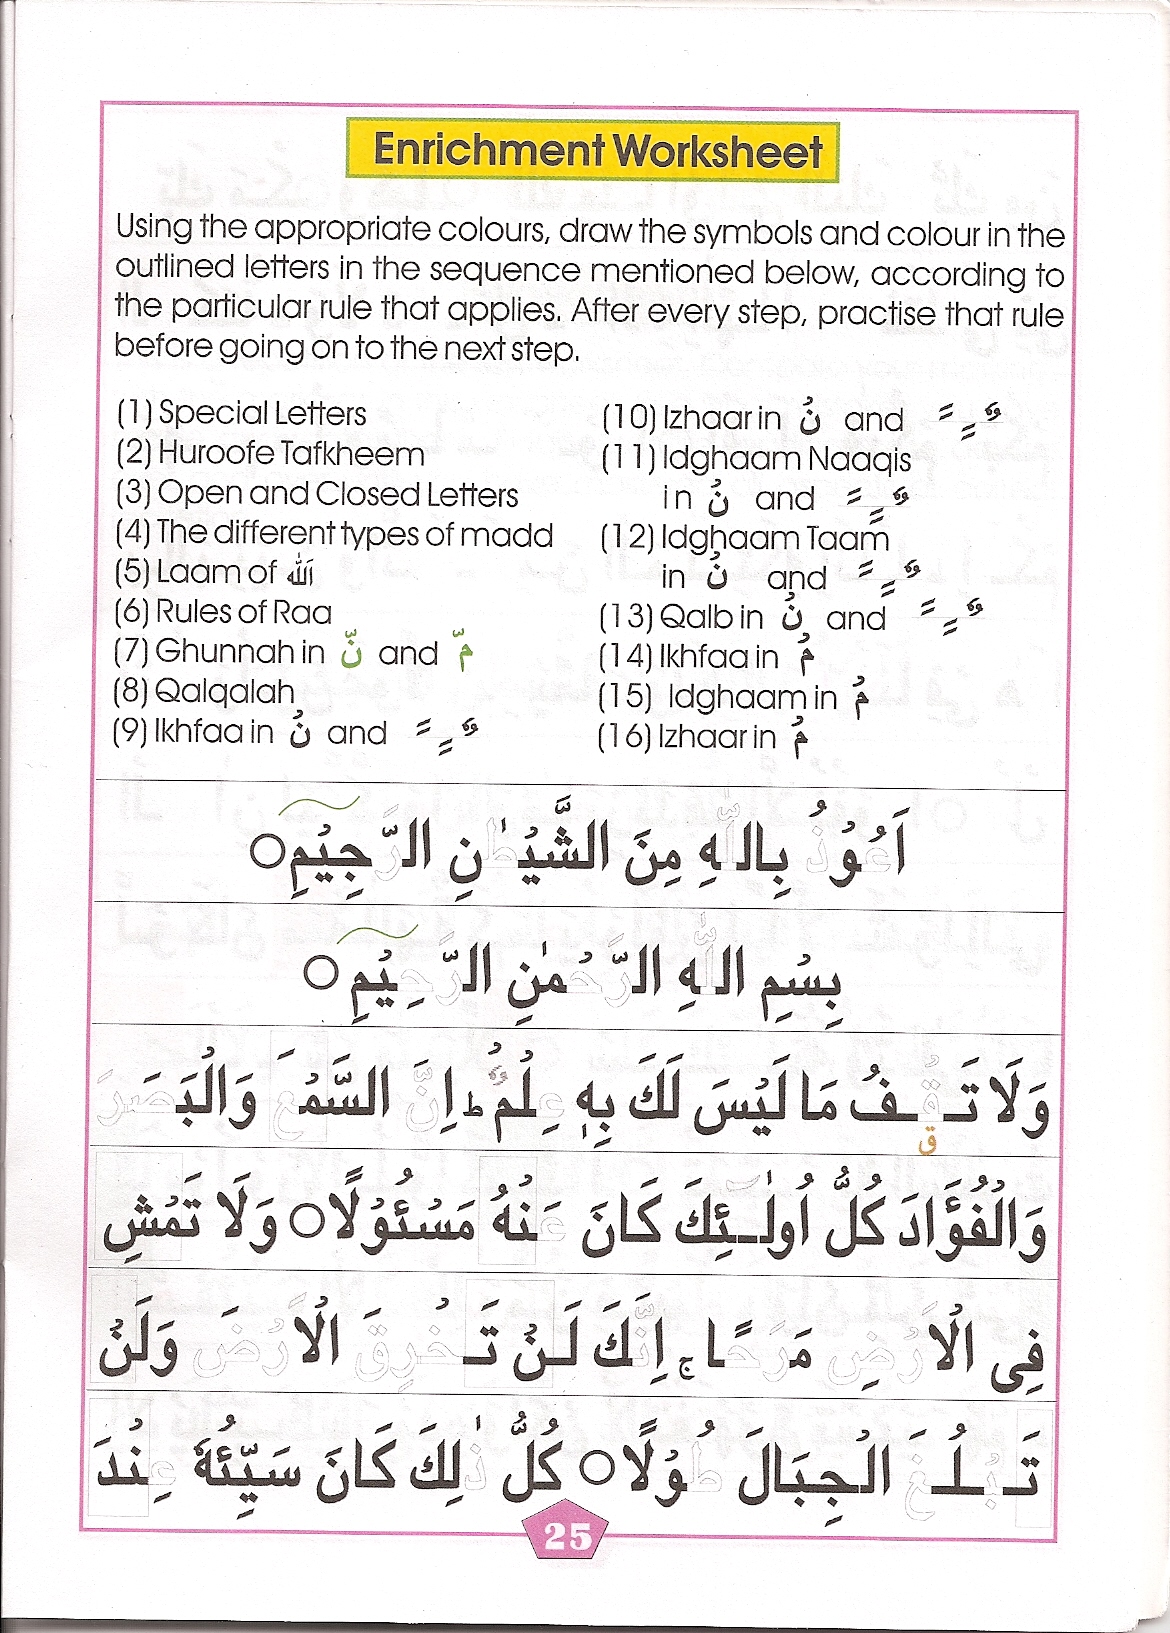 Enrichment Worksheet
Using the appropriate colours, draw the symbols and colour in the
outlined letters in the sequence mentioned below, according to
the particular rule that applies. After every step, practise that rule
before going on to the next step.
(1) Special Letters
(2) Huroofe Tafkheem
(3) Open and Closed Letters
(4) The different types of madd
(5) Laam of اَللّٰه
(6) Rules of Raa
(7) Ghunnah in نّ and مّ
(8) Qalqalah
(9) Ikhfaa in نْ and ـً ـٍ ـٌ
(10) Izhaar in نْ and ـً ـٍ ـٌ
(11) Idghaam Naaqis
in نْ and ـً ـٍ ـٌ
(12) Idghaam Taam
in نْ and ـً ـٍ ـٌ
(13) Qalb in نْ and ـً ـٍ ـٌ
(14) Ikhfaa in مْ
(15) Idghaam in مْ
(16) Izhaar in مْ
اَعُوْذُ بِاللّٰهِ مِنَ الشَّيْطٰنِ الرَّجِيْمِ ○
بِسْمِ اللّٰهِ الرَّحْمٰنِ الرَّحِيْمِ ○
وَلَا تَقْفُ مَا لَيْسَ لَكَ بِهٖ عِلْمٌ ؕ اِنَّ السَّمْعَ وَالْبَصَرَ
ق
وَالْفُؤَادَ كُلُّ اُولٰٓئِكَ كَانَ عَنْهُ مَسْئُوْلًا ○ وَلَا تَمْشِ
فِى الْاَرْضِ مَرَحًا ۚ اِنَّكَ لَنْ تَخْرِقَ الْاَرْضَ وَلَنْ
تَبْلُغَ الْجِبَالَ طُوْلًا ○ كُلُّ ذٰلِكَ كَانَ سَيِّئُهٗ عِنْدَ
25